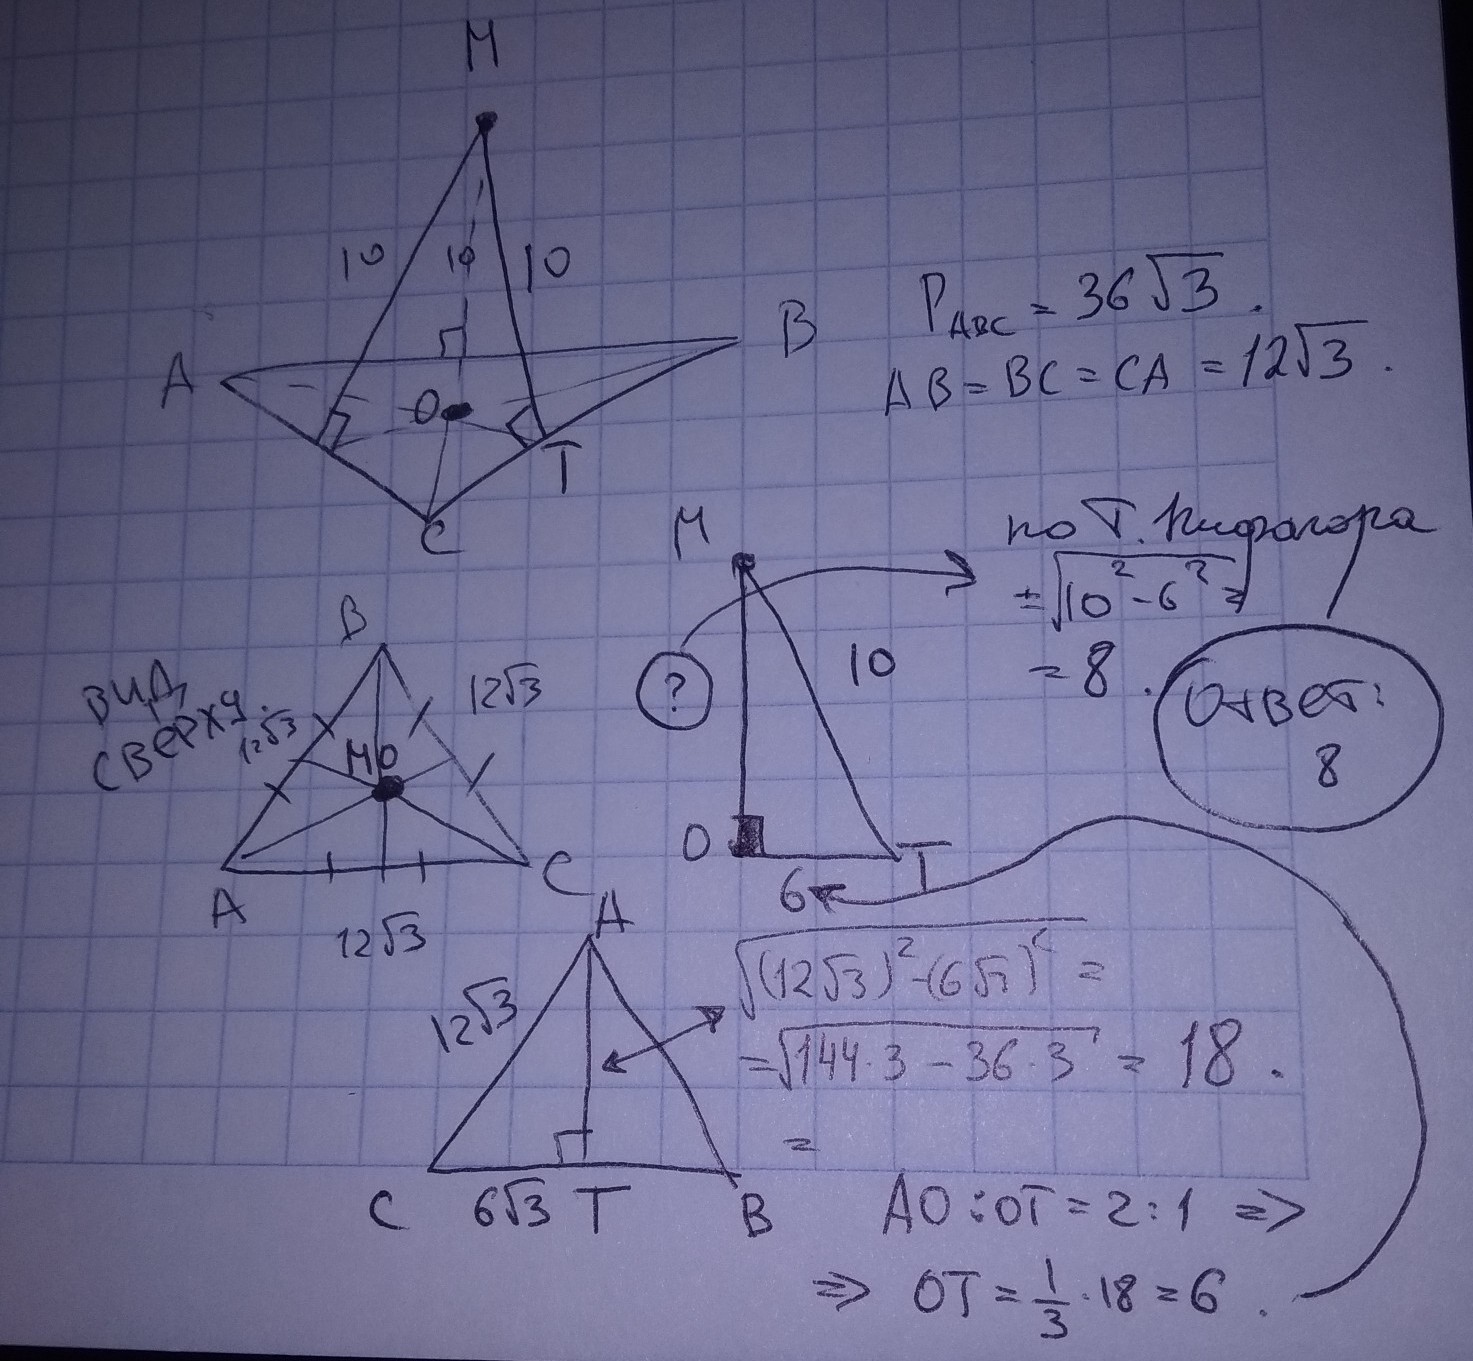 M
10 10 10
A B
O
T
C
P_ABC = 36√3.
AB = BC = CA = 12√3.
M
по Т. Пифагора
= √10² - 6² =
= 8.
?
10
O T
6
Ответ:
8
вид
сверху.
B
12√3 12√3
MO
A C
12√3
A
12√3
√(12√3)² - (6√3)² =
= √144·3 - 36·3 = 18.
=
C 6√3 T B
AO : OT = 2 : 1 ⇒
⇒ OT = 1/3 · 18 = 6.